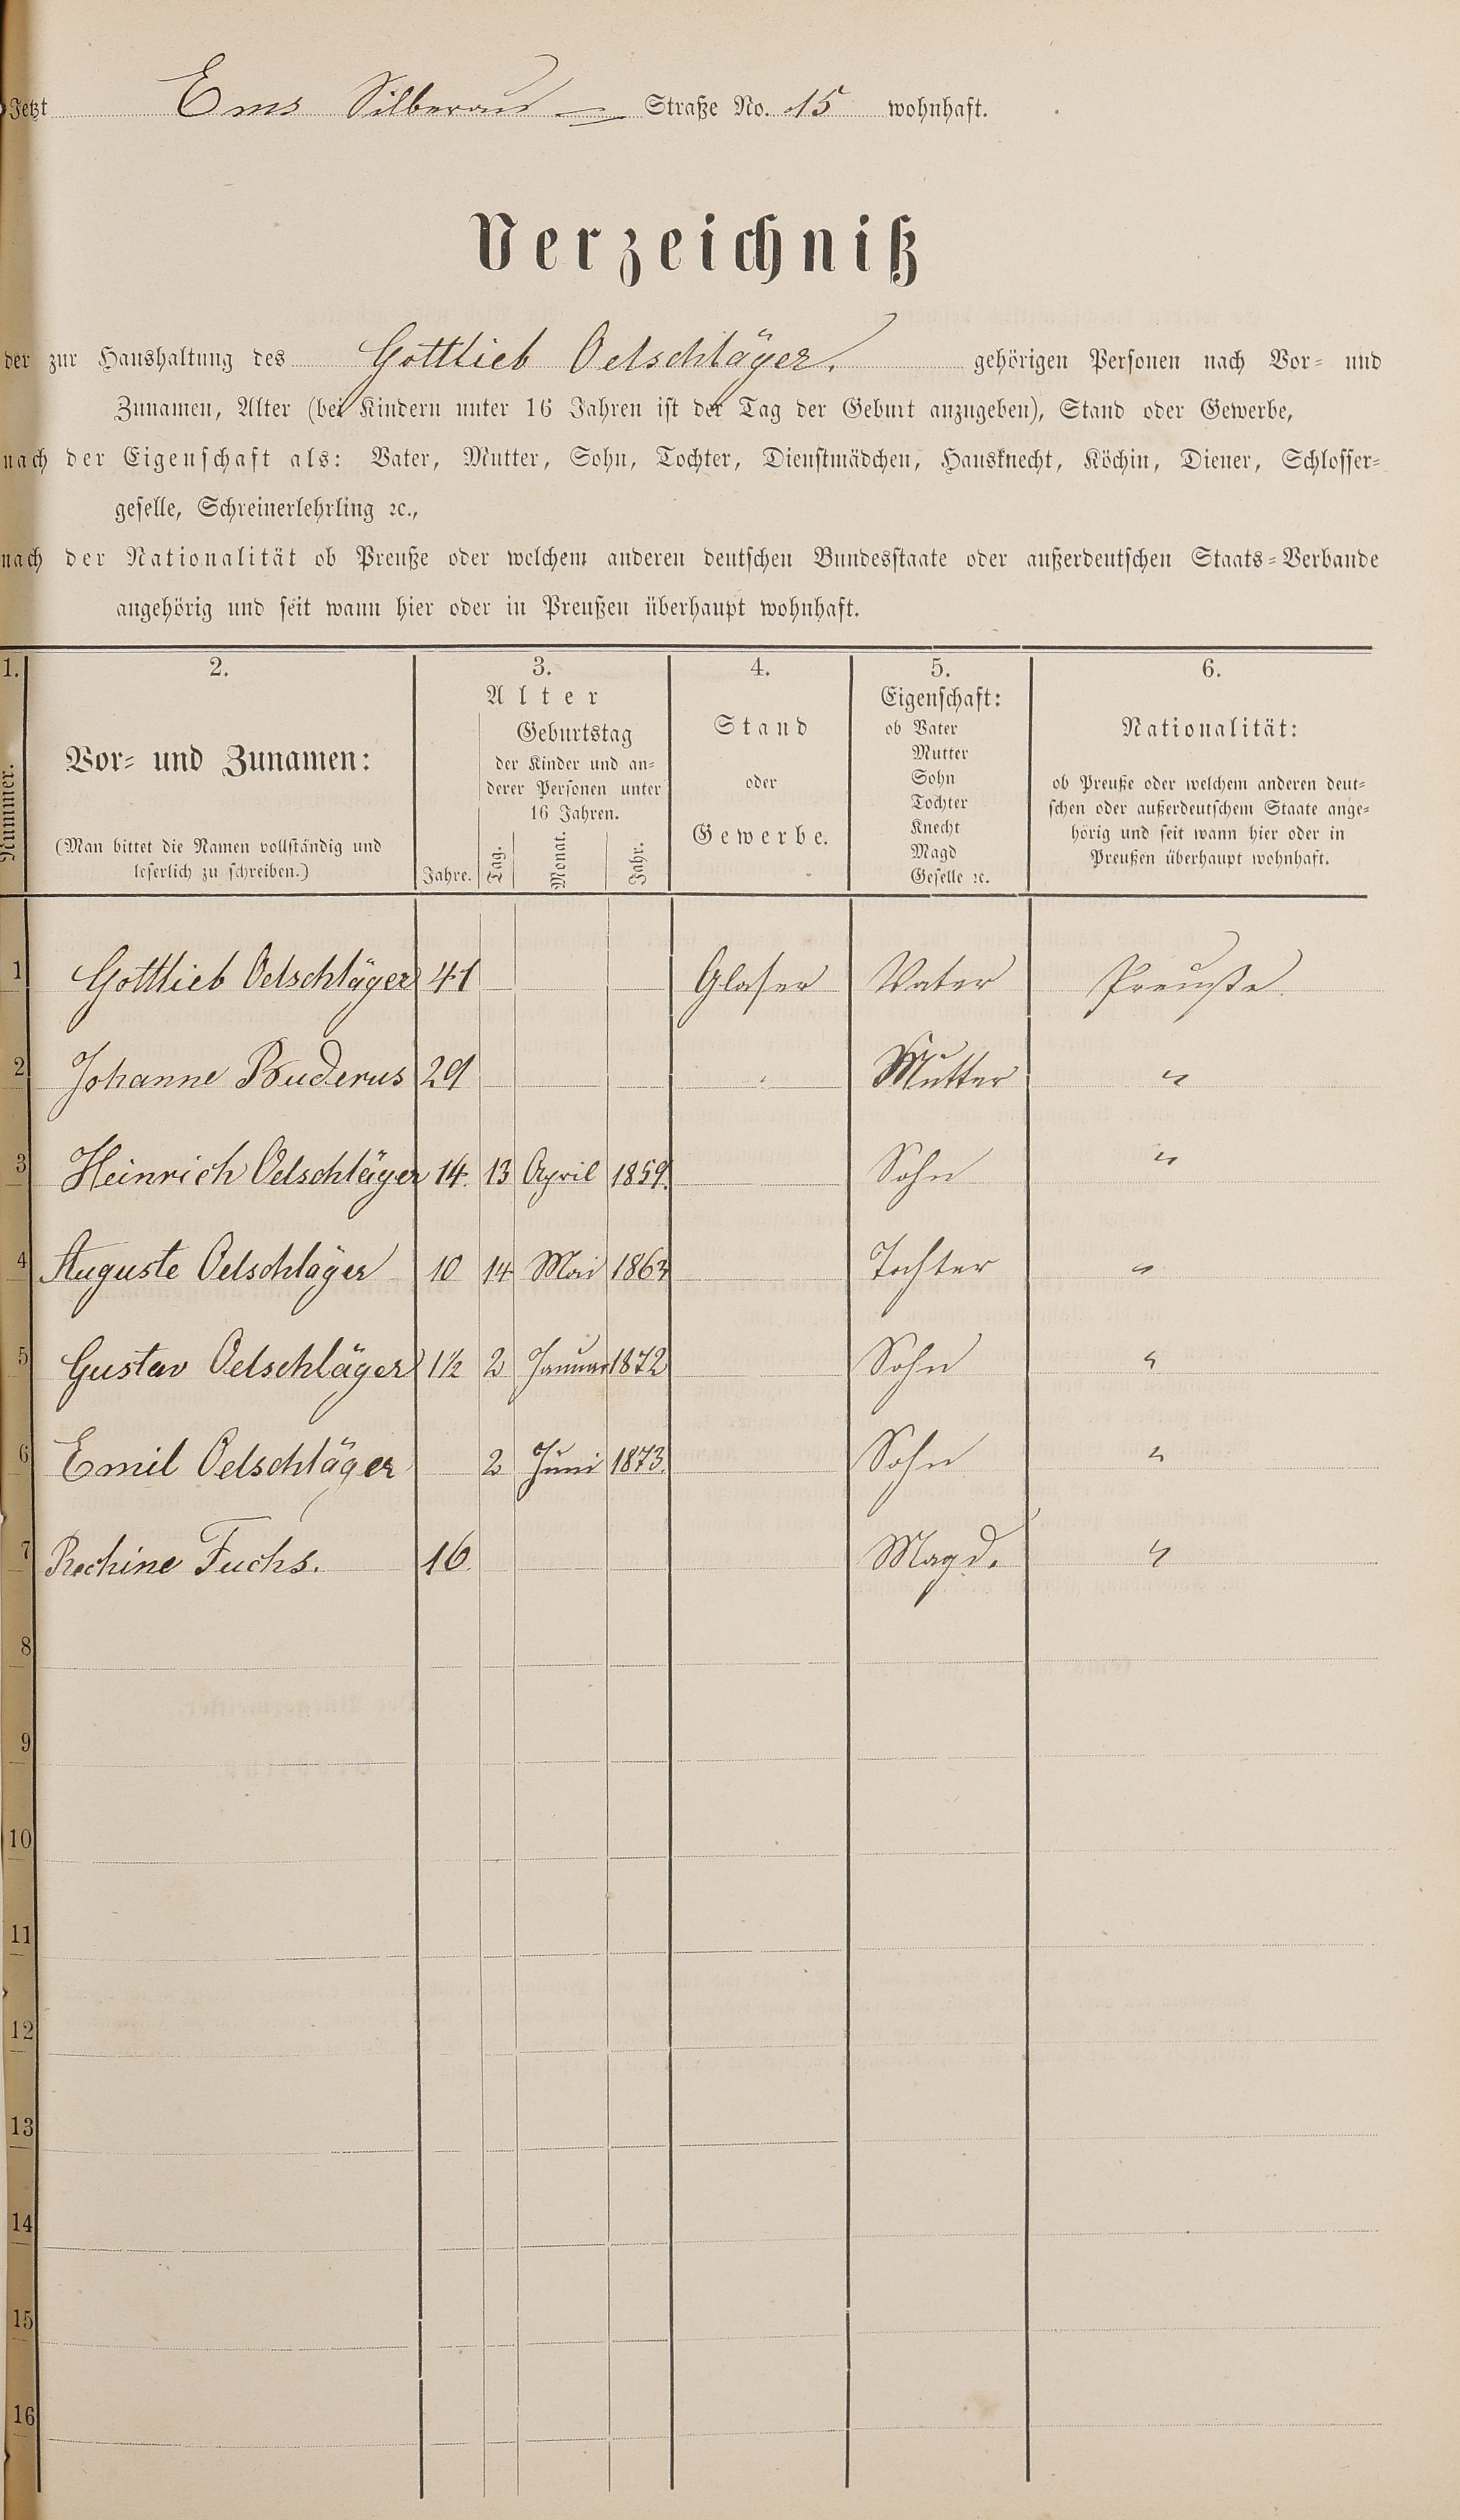 Jetzt Ems Silberau Straße No. 15 wohnhaft.
Verzeichniß
der zur Haushaltung des Gottlieb Oelschläger. gehörigen Personen nach Vor- und
Zunamen, Alter (bei Kindern unter 16 Jahren ist der Tag der Geburt anzugeben), Stand oder Gewerbe,
nach der Eigenschaft als: Vater, Mutter, Sohn, Tochter, Dienstmädchen, Hausknecht, Köchin, Diener, Schlosser-
geselle, Schreinerlehrling ꝛc.,
nach der Nationalität ob Preuße oder welchem anderen deutschen Bundesstaate oder außerdeutschen Staats-Verbande
angehörig und seit wann hier oder in Preußen überhaupt wohnhaft.
1. 2. 3. 4. 5. 6.
Nummer.
Vor- und Zunamen:
(Man bittet die Namen vollständig und
leserlich zu schreiben.)
Alter
Geburtstag
der Kinder und an-
derer Personen unter
16 Jahren.
Jahre. Tag. Monat. Jahr.
Stand
oder
Gewerbe.
Eigenschaft:
ob Vater
Mutter
Sohn
Tochter
Knecht
Magd
Geselle ꝛc.
Nationalität:
ob Preuße oder welchem anderen deut-
schen oder außerdeutschem Staate ange-
hörig und seit wann hier oder in
Preußen überhaupt wohnhaft.
1 Gottlieb Oelschläger 41 Glaser Vater Preuße.
2 Johanne Buderus 29 Mutter "
3 Heinrich Oelschläger 14. 13 April 1859. Sohn "
4 Auguste Oelschläger 10 14 Mai 1863 Tochter "
5 Gustav Oelschläger 1½ 2 Januar 1872 Sohn "
6 Emil Oelschläger 2 Juni 1873. Sohn "
7 Fuchs. 16. Magd. "
8
9
10
11
12
13
14
15
16